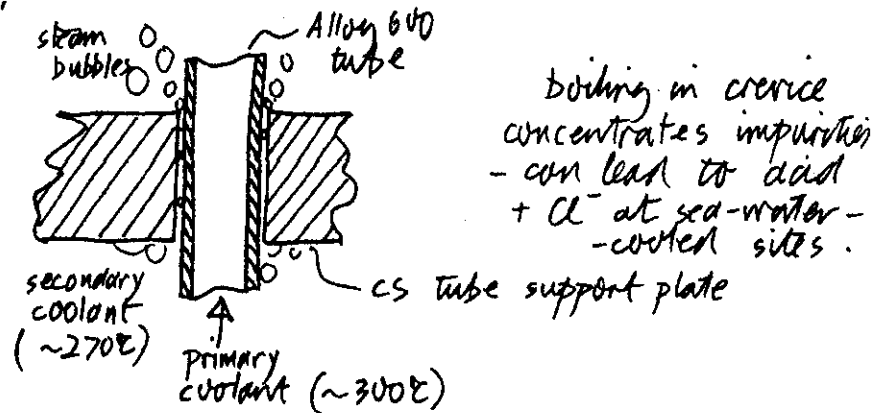 steam
bubbles
Alloy 600
tube
boiling in crevice
concentrates impurities
- can lead to acid
+ Cl⁻ at sea-water-
-cooled sites.
secondary
coolant
(~270℃)
CS tube support plate
primary
coolant (~300℃)